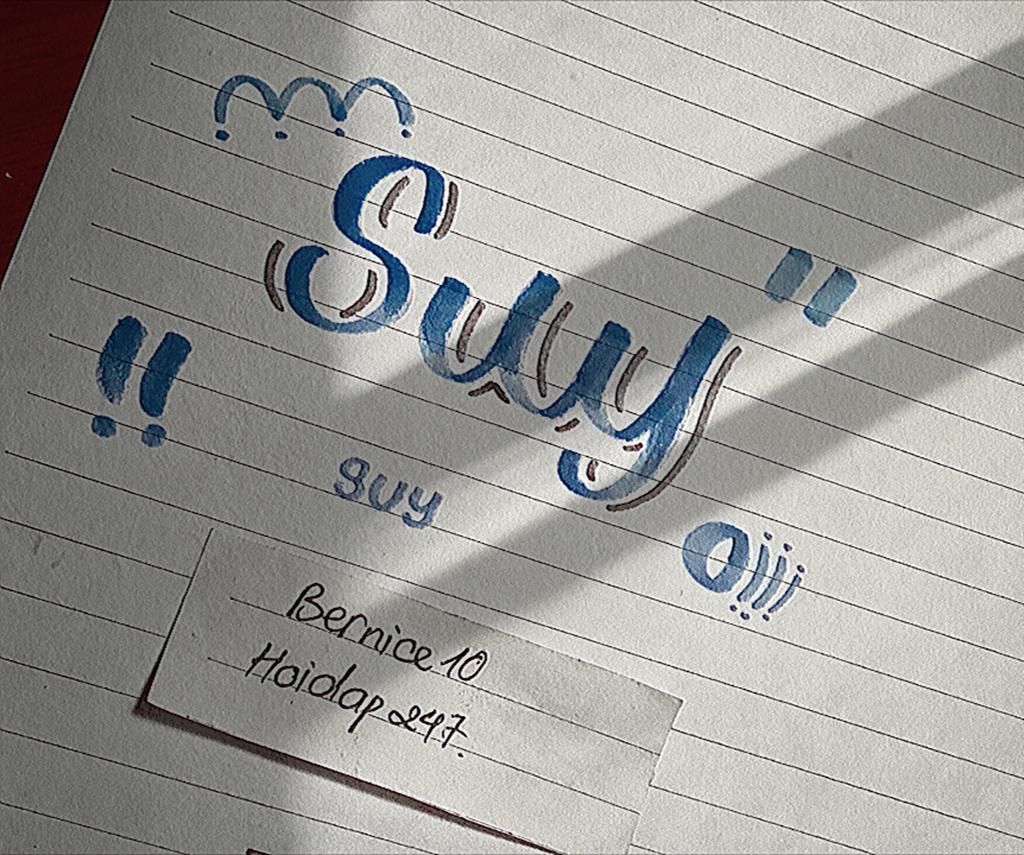 Suuy
"
!!
suy
Bernice 10
Hoidap 247.